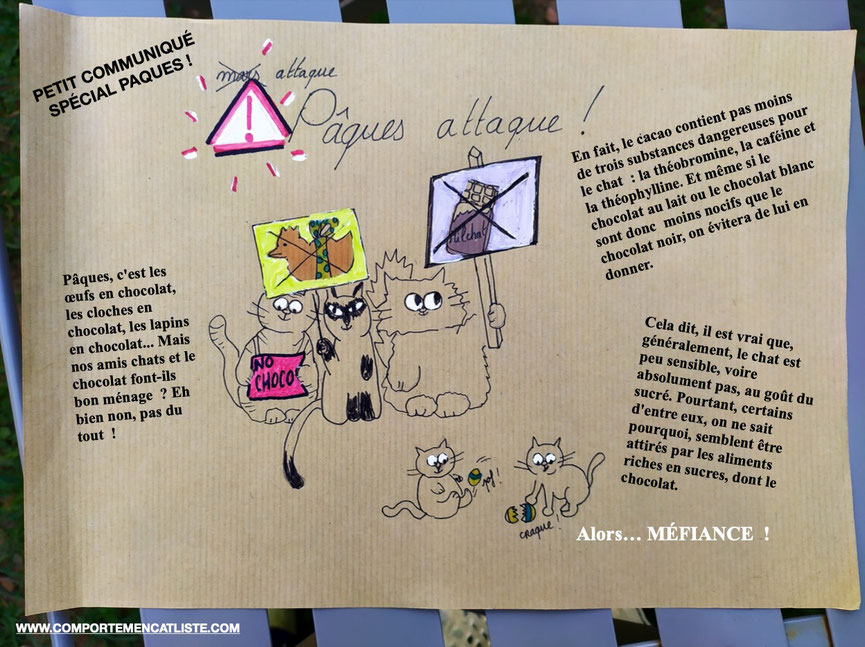 PETIT COMMUNIQUÉ
SPÉCIAL PAQUES !
mars attaque
Pâques attaque !
En fait, le cacao contient pas moins
de trois substances dangereuses pour
le chat : la théobromine, la caféine et
la théophylline. Et même si le
chocolat au lait ou le chocolat blanc
sont donc moins nocifs que le
chocolat noir, on évitera de lui en
donner.
Pâques, c'est les
œufs en chocolat,
les cloches en
chocolat, les lapins
en chocolat... Mais
nos amis chats et le
chocolat font-ils
bon ménage ? Eh
bien non, pas du
tout !
NO
CHOCO
Cela dit, il est vrai que,
généralement, le chat est
peu sensible, voire
absolument pas, au goût du
sucré. Pourtant, certains
d'entre eux, on ne sait
pourquoi, semblent être
attirés par les aliments
riches en sucres, dont le
chocolat.
craque !
Alors… MÉFIANCE !
WWW.COMPORTEMENCATLISTE.COM